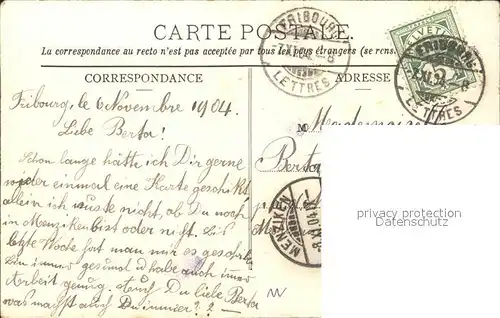 CARTE POSTALE.
La correspondance au recto n'est pas acceptée par tous les pays étrangers (se rens
CORRESPONDANCE
ADRESSE
FRIBOURG
LETTRES
FRIBOURG
LETTRES
HELVETIA
Fribourg, le 6 Novembre 1904.
Liebe Berta!
Schon lange hätte ich Dir gerne
wieder einmal eine Karte geschickt
allein ich wusste nicht, ob Du noch
in Menziken bist oder nicht. Bis
letzte Woche hat man mir es geschr.
Bin immer gesund & habe auch immer
Arbeit genug. Auch Du liebe Berta
was machst auch Du immer? ? —
M
Mademoiselle
Berta
MENZIKEN
privacy protection
Datenschutz